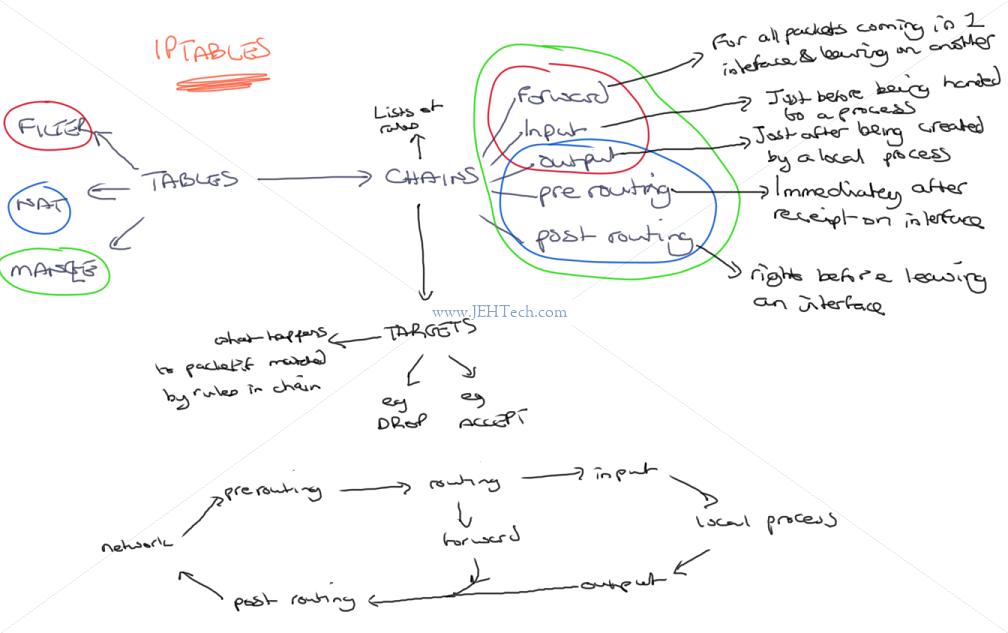 IPTABLES
FILTER
NAT
MANGLE
TABLES
Lists of
rules
CHAINS
Forward
Input
output
pre routing
post routing
For all packets coming in 1
interface & leaving on another
Just before being handed
to a process
Just after being created
by a local process
Immediately after
receipt on interface
rights before leaving
an interface
www.JEHTech.com
TARGETS
what happens
to packet if matched
by rules in chain
eg
DROP
eg
ACCEPT
prerouting
routing
input
local process
network
forward
post routing
output